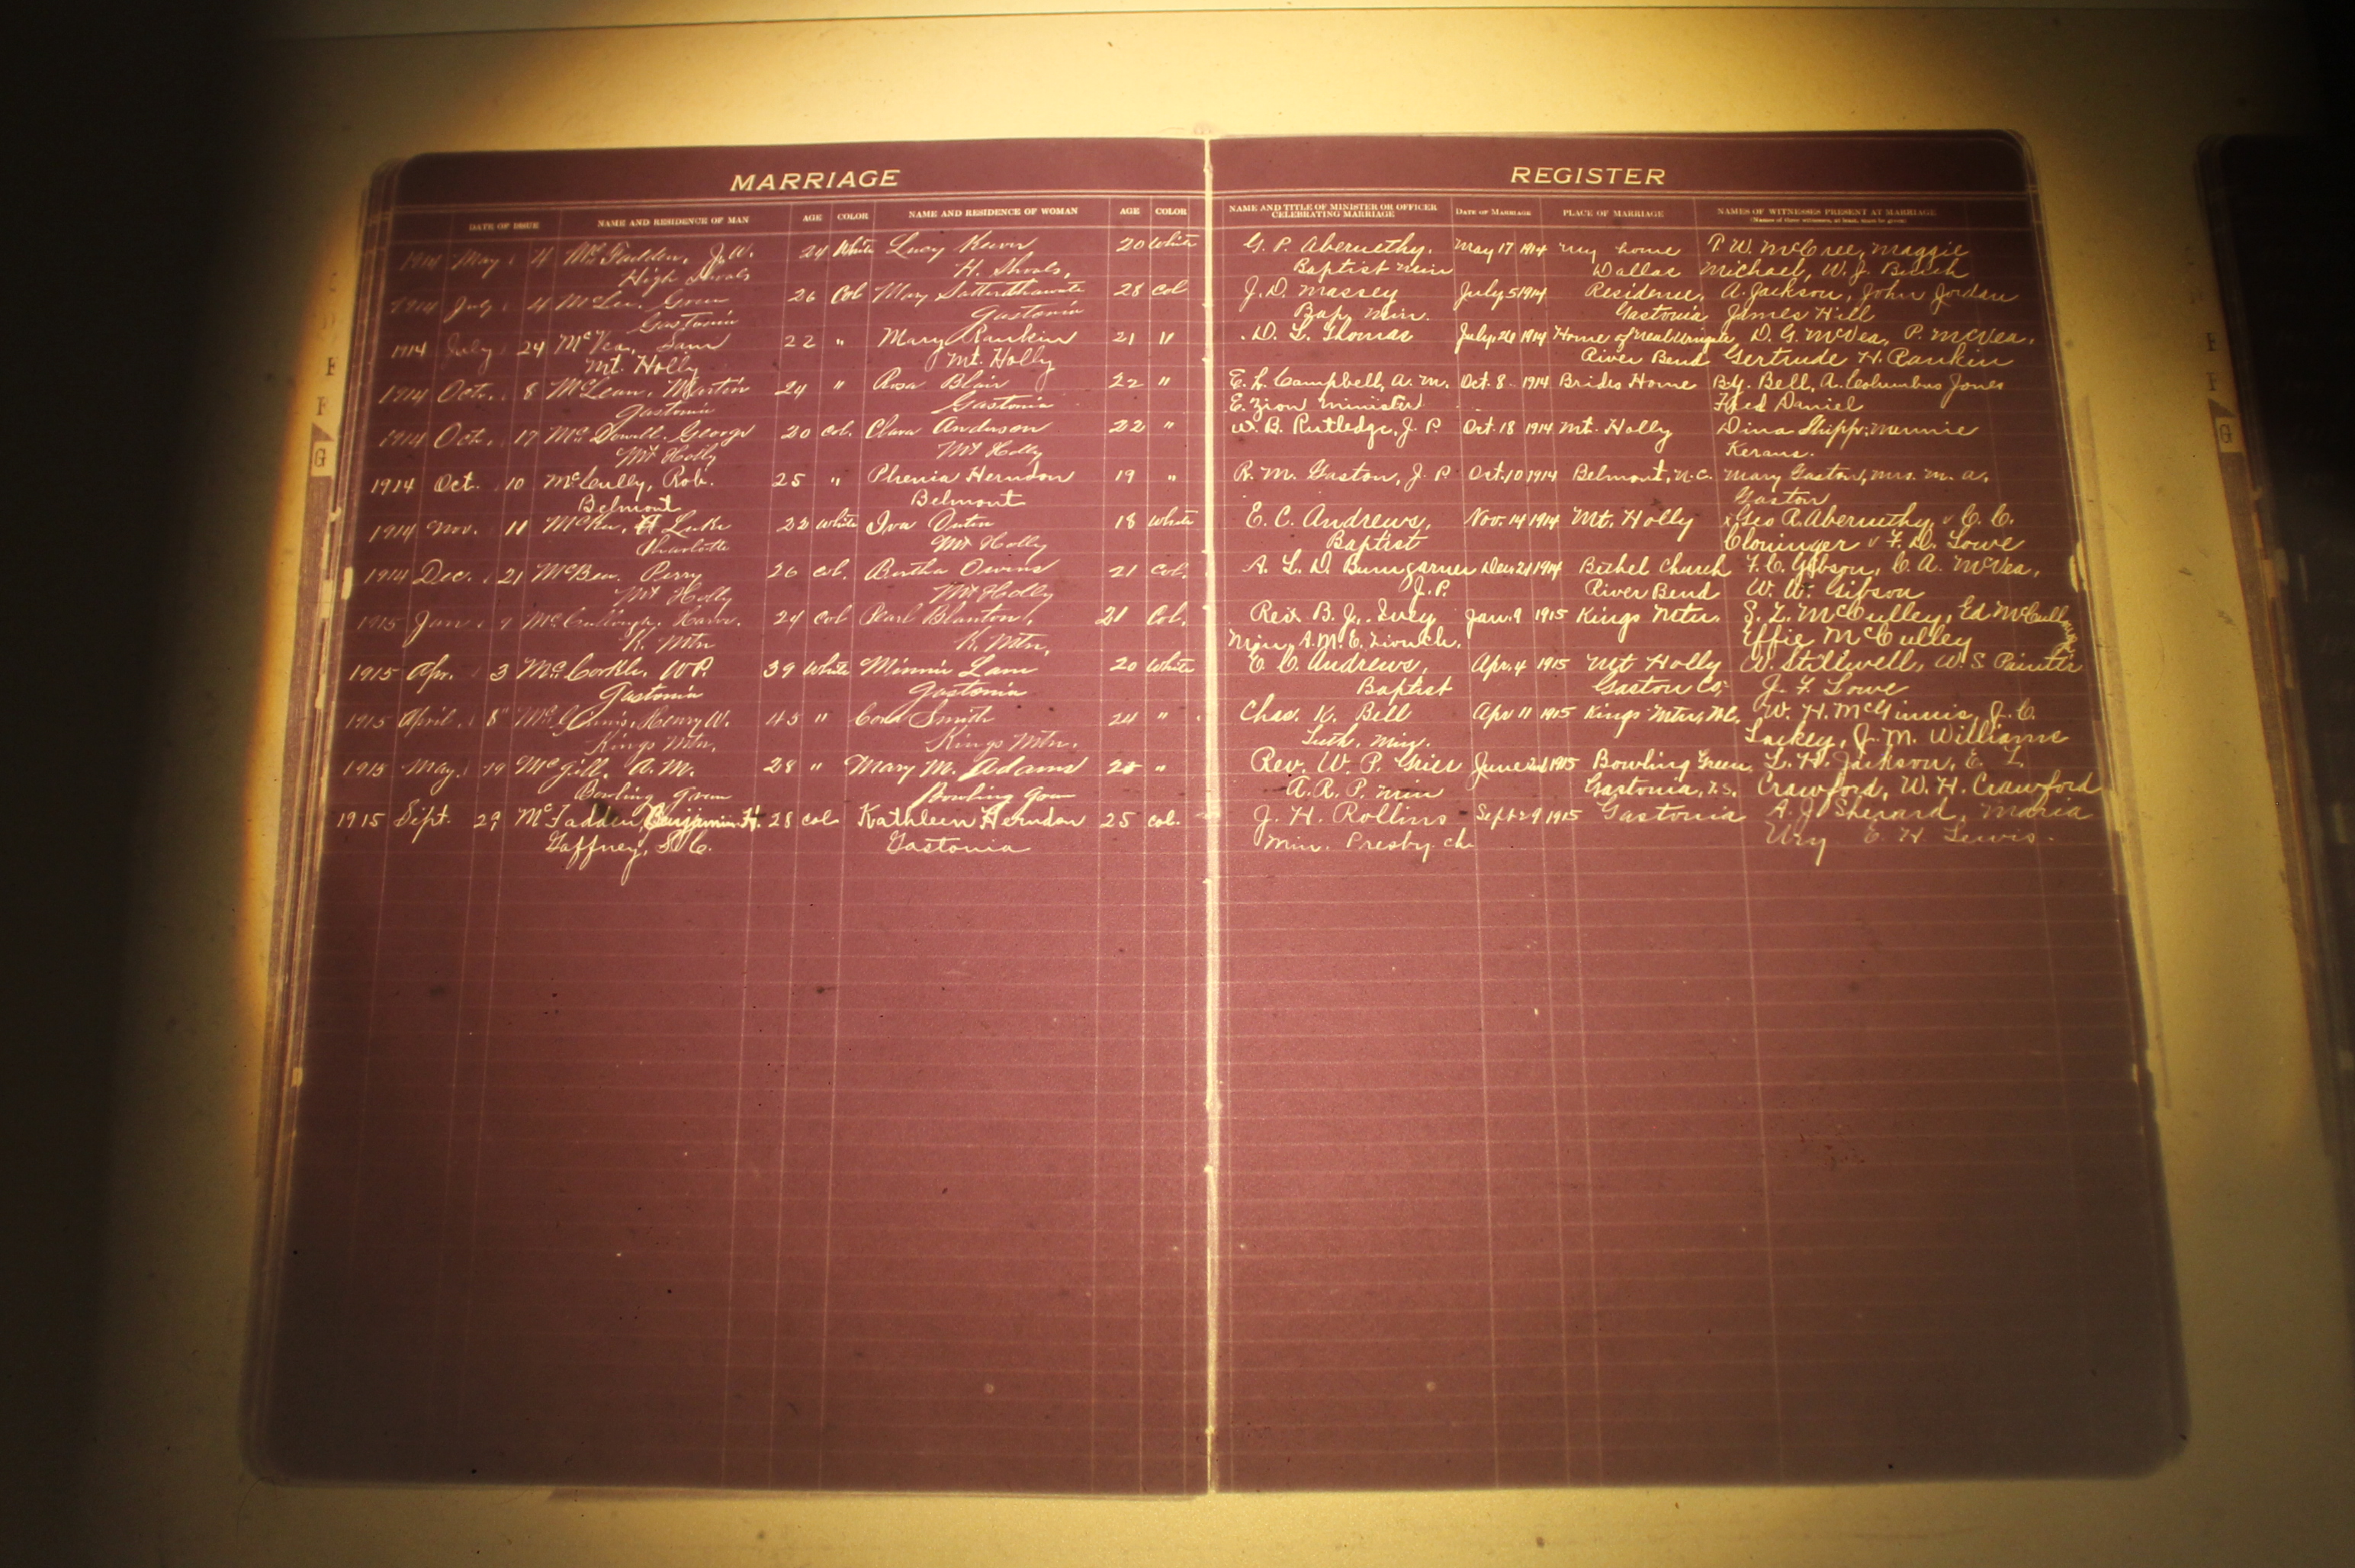 MARRIAGE
DATE OF ISSUE NAME AND RESIDENCE OF MAN AGE COLOR NAME AND RESIDENCE OF WOMAN AGE COLOR
1914 May 4 McFadden, J. W. 24 White Lucy Keever 20 White
High Shoals H. Shoals,
1914 July 4 McLee. Green 26 Col Mary Satterthwaite 28 col
Gastonia Gastonia
1914 July 24 McVea, Sam 22 " Mary Rankin 21 "
Mt. Holly Mt. Holly
1914 Oct. 8 McLean, Martin 24 " Rosa Blair 22 "
Gastonia Gastonia
1914 Oct. 17 McDowell George 20 col. Clara Anderson 22 "
Mt Holly Mt Holly
1914 Oct. 10 McCully, Rob. 25 " Phenia Herndon 19 "
Belmont Belmont
1914 Nov. 11 McKee, Luke 22 White Iva 18 White
Charlotte Mt Holly
1914 Dec. 21 McBee. Perry 26 col. Bertha Owens 21 Col.
Mt Holly Mt Holly
1915 Jan 9 McCullough. 24 Col Pearl Blanton, 21 Col.
K. Mtn K. Mtn,
1915 Apr. 3 McCorkle. W P. 39 White Minnie Lane 20 White
Gastonia Gastonia
1915 April 8" McGinnis, Henry W. 45 " Cora Smith 24 "
Kings Mtn, Kings Mtn.
1915 May 19 McGill. A. M. 28 " Mary M. Adams "
Bowling Green Bowling Green
1915 Sept. 29 McFadden, Benjamin H. 28 col Kathleen Herndon 25 col.
Gaffney, S. C. Gastonia
REGISTER
NAME AND TITLE OF MINISTER OR OFFICER CELEBRATING MARRIAGE DATE OF MARRIAGE PLACE OF MARRIAGE NAMES OF WITNESSES PRESENT AT MARRIAGE
(Names of three witnesses, at least, must be given)
G. P. Abernethy. May 17 1914 my home P. W. McCree, Maggie
Baptist Min Dallas Michael, W. J. Beach
J. D. Massey July 5 1914 Residence, A. Jackson, John Jordan
Bap. Min. Gastonia James Hill
D. L. Thomas July 26 1914 Home of Neal Wingate D. G. McVea, P. McVea,
River Bend Gertrude H. Rankin
E. L. Campbell, A. M. Oct. 8 1914 Brides Home B. Y. Bell, A. Columbus Jones
E. Zion Minister Fred Daniel
W. B. Rutledge, J. P. Oct. 18 1914 Mt. Holly Dina Shipp, Minnie
Kerans.
R. M. Gaston, J. P. Oct. 10 1914 Belmont, N. C. Mary Gaston, Mrs. M. A.
Gaston
E. C. Andrews, Nov. 14 1914 Mt. Holly Geo R. Abernethy, C. C.
Baptist Cloninger F. D. Lowe
A. L. D. Bumgarner Dec. 21 1914 Bethel Church F. C. Gibson, C. A. McVea,
J. P. River Bend W. W. Gibson
Rev. B. J. Ivey Jan. 9 1915 Kings Mtn. S. L. McCulley, Ed McCulley
Min. A. M. E. Zion ch. Effie McCulley
E. C. Andrews, Apr. 4 1915 Mt Holly W. Stillwell, W. S. Painter
Baptist Gaston Co; J. F. Lowe
Chas. K. Bell Apr 11 1915 Kings Mtn, N. C. W. H. McGinnis, J. C.
Luth. Min. Lackey, J. M. Williams
Rev. W. P. Grier June 1915 Bowling Green, L. H. Jackson, E. L.
A. R. P. Min Gastonia, Crawford, W. H. Crawford
J. H. Rollins Sept 29 1915 Gastonia A. J. Sherard, Maria
Min. Presby. ch Ury E. H. Lewis.
F
F
G
G